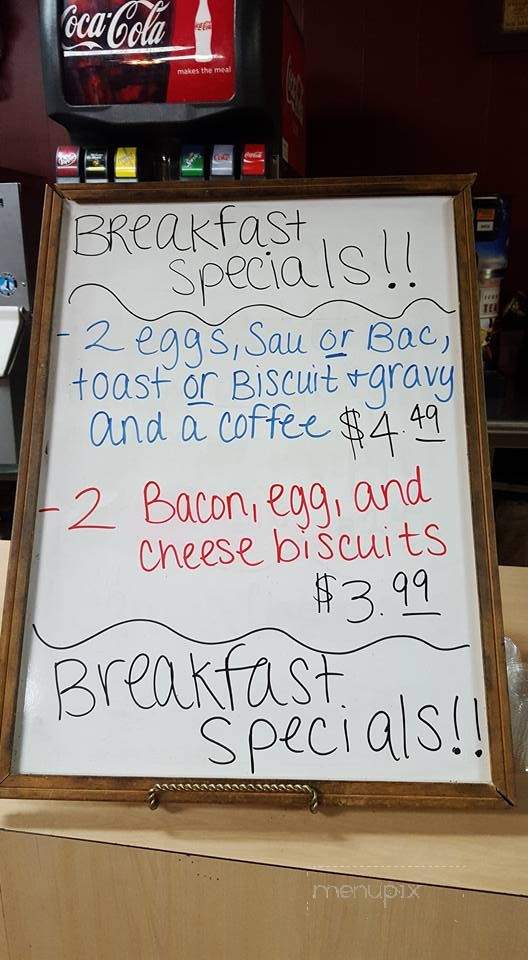 Coca-Cola
makes the meal
BReakfast
specials!!
-2 eggs, Sau or Bac,
toast or Biscuit + gravy
and a coffee $4.49
-2 Bacon, egg, and
cheese biscuits
$3.99
Breakfast
specials!!
menupix